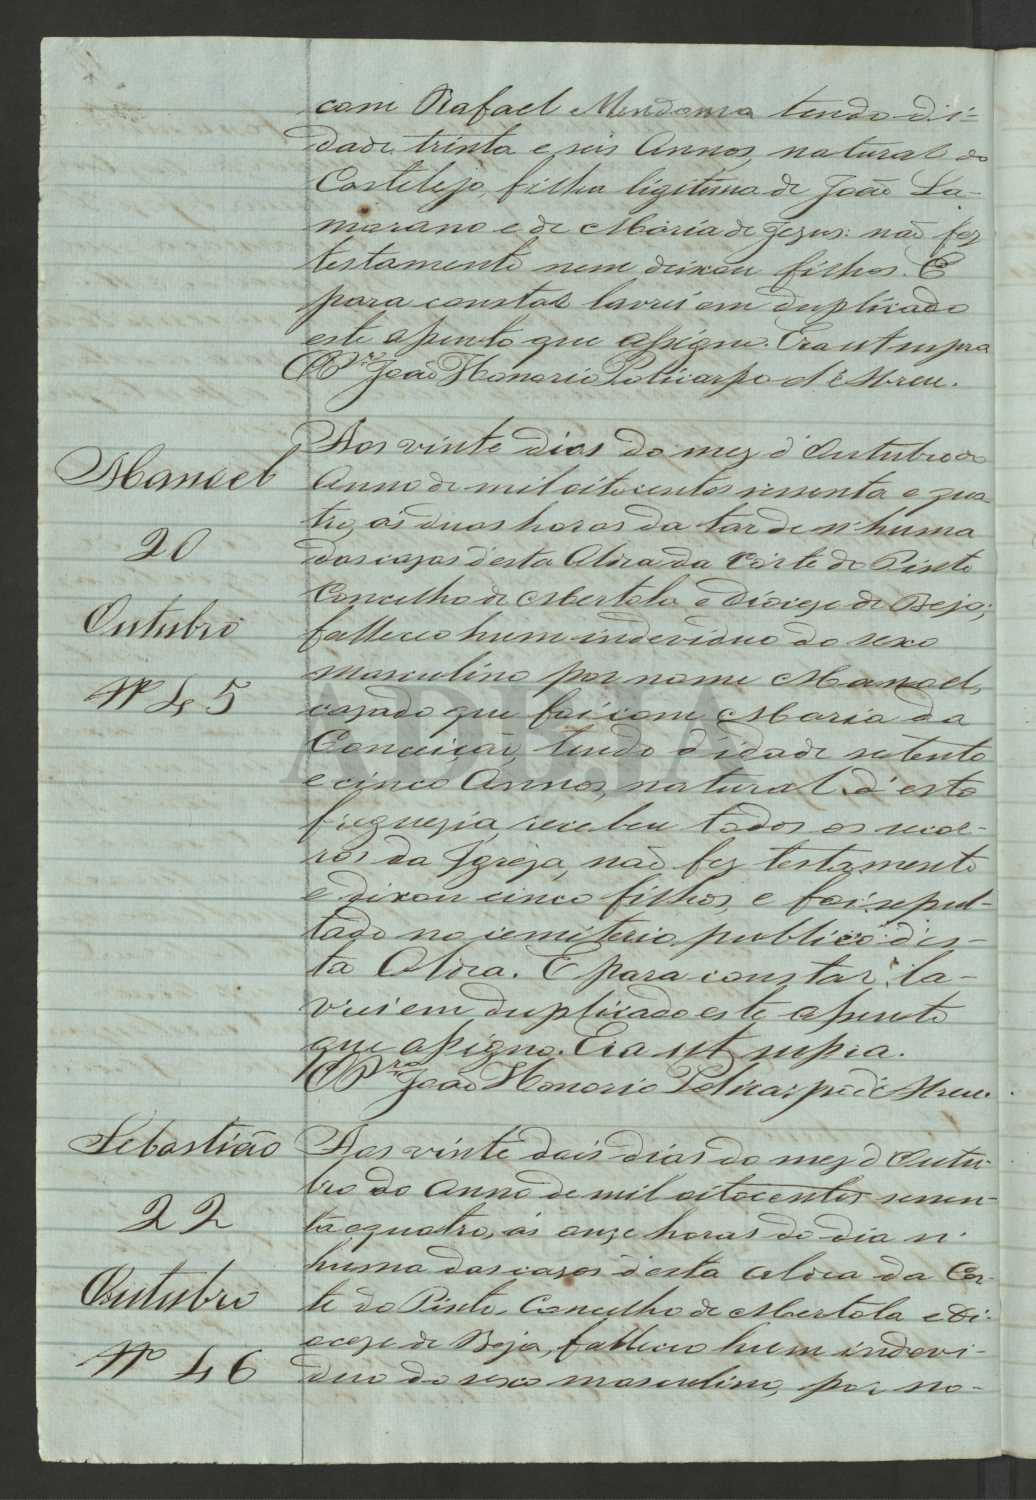 com Rafael Mendonça tendo d'i-
dade trinta e seis Annos, natural do
Castelejo, filha ligitima de João La-
marano e de Maria de Jezus: não fez
testamento nem deixou filhos. E
para constar lavrei em duplicado
este assento que assigno. Era ut supra
O Pr João Honorio Policarpo d'Abreu.
Aos vinte dias do mez d'Outubro do
Anno de mil oitocentos sessenta e qua-
tro, ás duas horas da tarde n'huma
das cazas desta Aldea da Corte do Pinto
Concelho de Mertola e Dioceze de Beja;
falleceo hum individuo do sexo
masculino por nome Manoel,
cazado que foi com Maria da
Conceição, tendo d'idade setenta
e cinco Annos, natural d'esta
freguezia, recebeu todos os socor-
ros da Igreja, não fez testamento
e dixou cinco filhos, e foi sepul-
tado no cemiterio publico des-
ta Aldea. E para constar la-
vrei em duplicado este assento
que assigno. Era ut supra.
O Pr João Honorio Policarpo d'Abreu.
Manoel
20
Outubro
Nº 45
Aos vinte dois dias do mez d'Outu-
bro do Anno de mil oitocentos sessen-
ta e quatro, ás onze horas do dia n'
huma das cazas desta Aldea da Cor-
te do Pinto, Concelho de Mertola e Di-
oceze de Beja, falleceo hum indevi-
duo do sexo masculino, por no-
Sebastião
22
Outubro
Nº 46
ADBJA